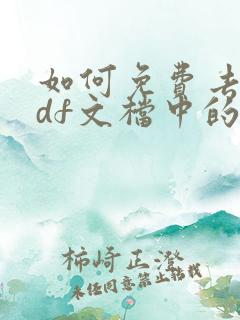 如何免费去
df文檔中的
柿崎正澄
未经同意禁止转载